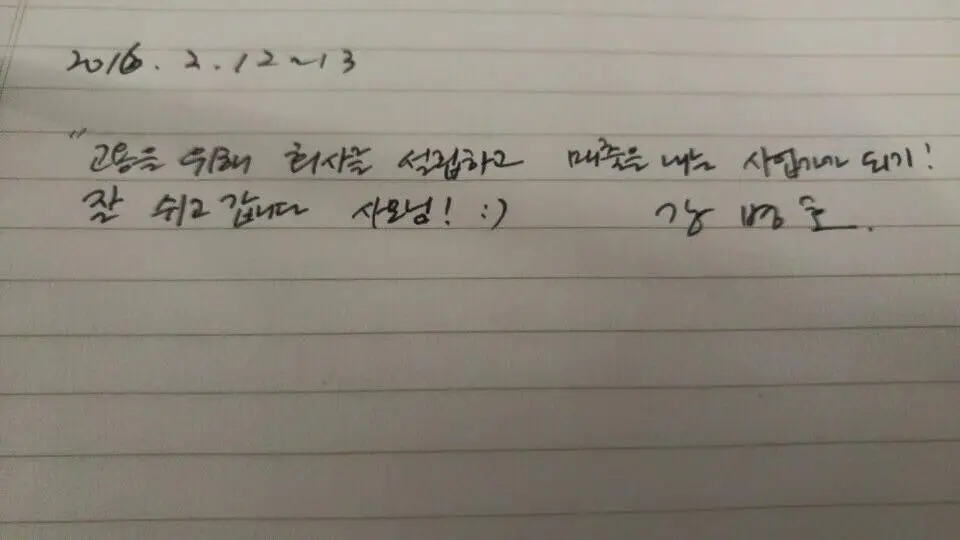 2016. 2. 12~13
"고용을 위해 회사를 설립하고 매출을 내는 사업가가 되기!
잘 쉬고 갑니다 사모님! :) 강병호.